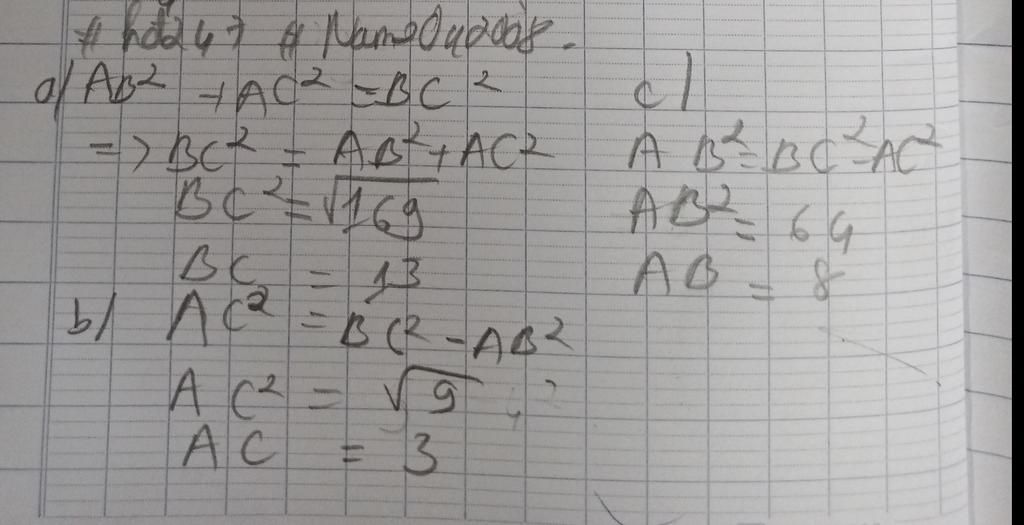 a) AB² + AC² = BC²
=> BC² = AB² + AC²
BC² = √169
BC = 13
b) AC² = BC² - AB²
AC² = √9
AC = 3
c)
AB² = BC² - AC²
AB² = 64
AB = 8